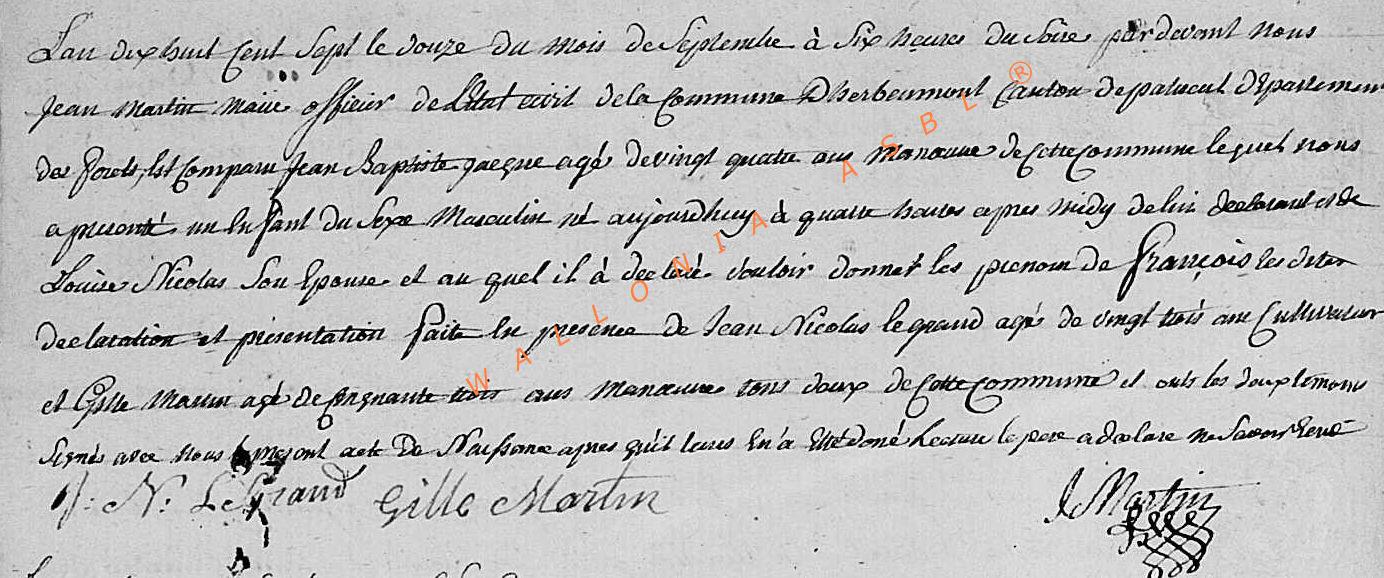 L'an dix huit Cent Sept le douze du mois de Septembre à Six heures du Soire pardevant nous
Jean Martin Maiie officier de L'Etat civil de la Commune D'herbeumont Canton de paliseul département
des forets, Est Comparu Jean Baptiste jacque agé de vingt quatre ans Manœuvre de Cette Commune lequel nous
a presenté un Enfant du Sexe Masculin né aujourdhuy à quatre heures apres midy de lui declarant et de
Louise Nicolas Son Epouse et au quel il à declaré vouloir donner les prenom de François les dites
declaration et présentation faite En presence de Jean Nicolas legrand agé de vingt trois ans Cultivateur
et Gille Martin agé de Cinquante trois ans Manœuvre tous deux de Cette Commune et onts les deux temoins
Signés avec nous le present acte De Naissance apres qu'il leurs En'a Etté doné Lecture le pere a declare ne Savoir
J: N: LeGrand Gille Martin J Martin
WALLONIA ASBL ®